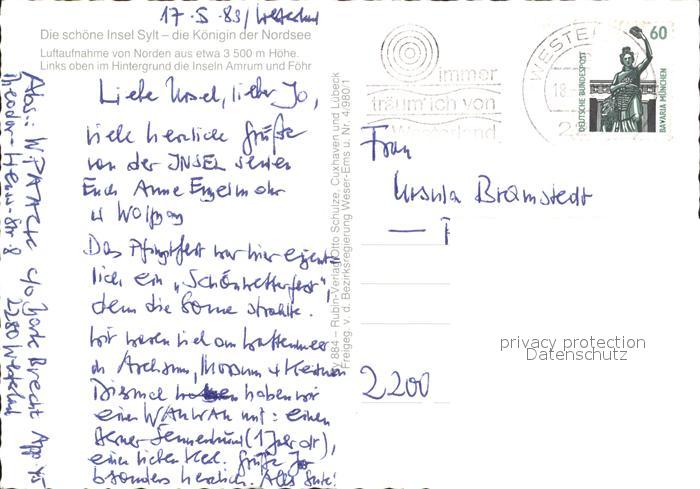 17.5.89/Westerland
Die schöne Insel Sylt – die Königin der Nordsee
Luftaufnahme von Norden aus etwa 3 500 m Höhe.
Links oben im Hintergrund die Inseln Amrum und Föhr
Liebe Ursel, lieber Jo,
viele herzliche Grüße
von der INSEL senden
Euch Anne Engelmohr
u Wolfgang
Das Pfingstfest war hier eigent-
lich ein „Schönwetterfest",
denn die Sonne strahlte.
Wir waren viel am Wattenmeer
in Archsum, Morsum + Keitum
Diesmal haben wir
einen WAUWAU mit: einen
Berner Sennenhund (1 Jahr alt),
einen lieben Kerl. Grüße Jo
besonders herzlich. Alles Gute!
Abs.: W. PAATCK c/o Brecht App.
Theodor-Heuss-Str. 8
2280 Westerland
884 – Rubin-Verlag Otto Schulze, Cuxhaven und Lübeck
Freigeg. v. d. Bezirksregierung Weser-Ems u. Nr. 4/980/1
immer
träum' ich von
Westerland
WESTE
18.
2
60
DEUTSCHE BUNDESPOST
BAVARIA MÜNCHEN
Frau
Ursula Bramstedt
privacy protection
Datenschutz
2200